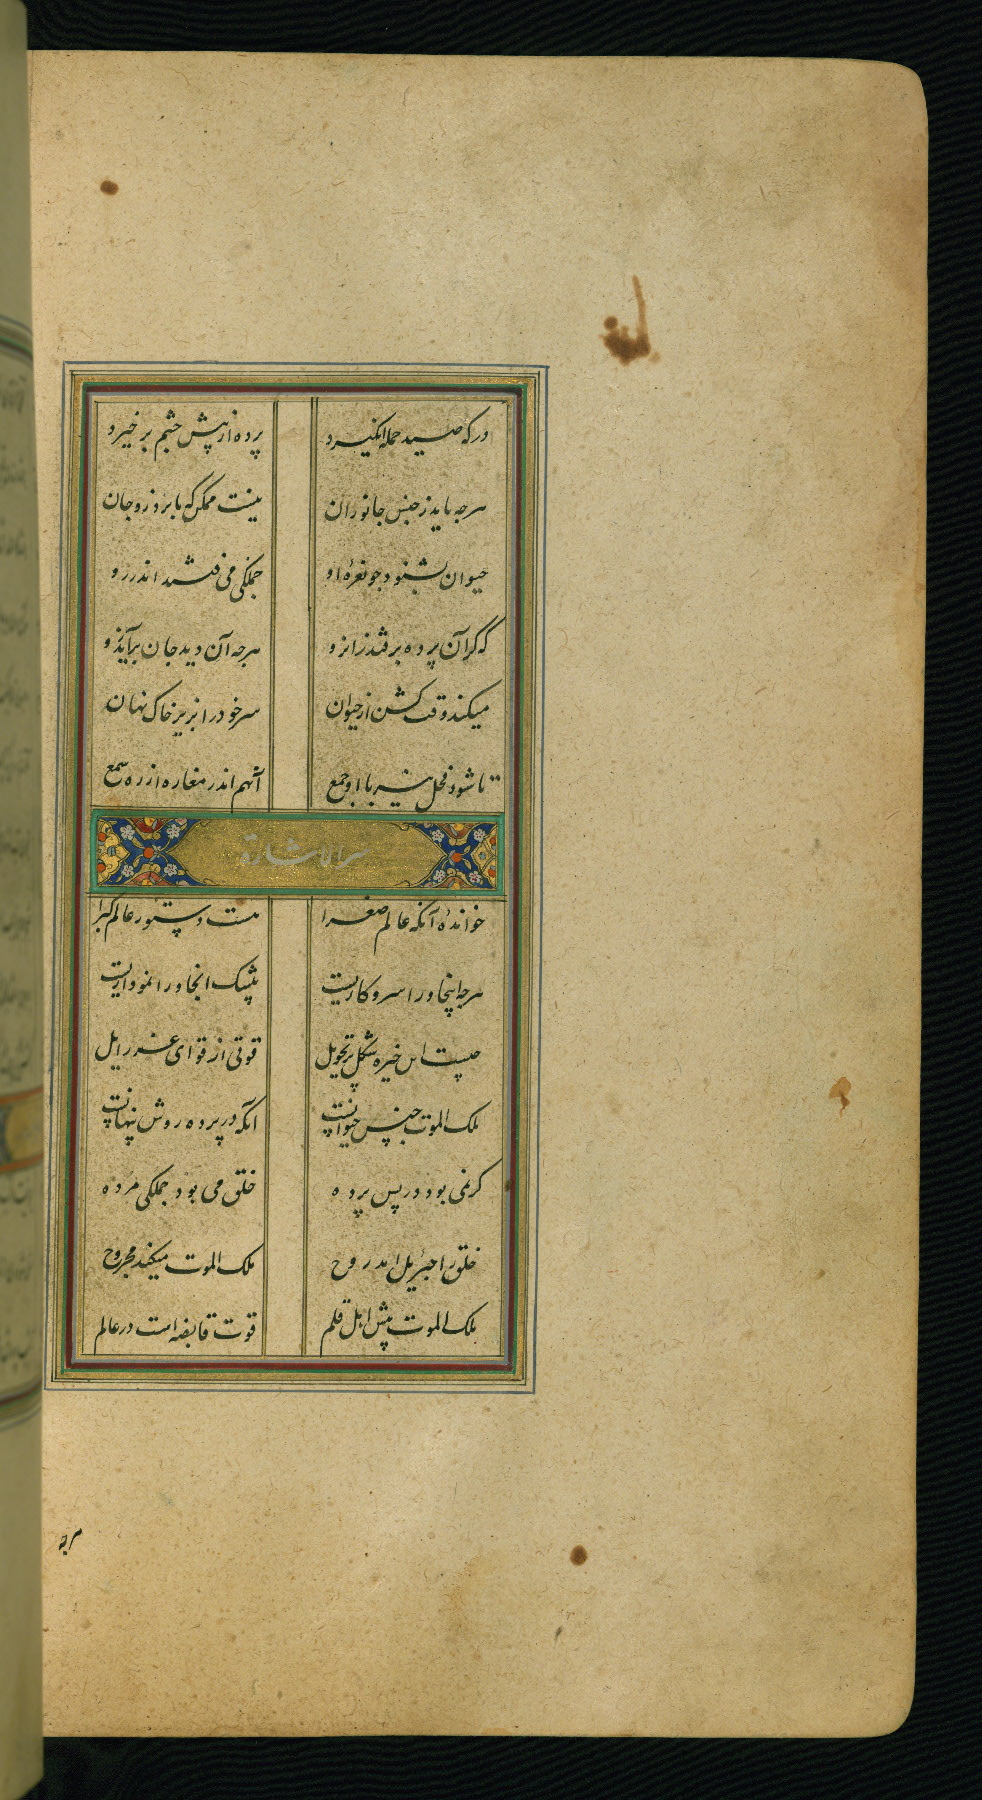 درکه صید حمله انگیرد پرده از پیش خشم بر خیرد
هرجه یابد ز جنس جانوران نیست ممکن که با برد زو جان
حیوان بشنود جو نعرهٔ او جملکی می فتند اندر رو
که کر آن پرده برفتد زانرو هرجه آن دید جان برآید زو
میکند وقت کشتن از حیوان سر خود را بزیر خاک نهان
تا شود فحل شیر با او جمع آنهم اندر مغاره از ره سمع
سر الاشارة
خواندهٔ آنکه عالم صغرا هست دستور عالم کبرا
هرجه اینجا ورا سر و کاریست بیشک انجا ورا نموداریست
چیست این خیره شکل پر تحویل قوتی از قوای عزرایل
ملک الموت جنس حیوانست انکه در پرده روش پنهانست
کر نمی بود در پس پرده خلق می بود جملکی مرده
خلق را جبرئیل آمد روح ملک الموت میکند مجروح
ملک الموت پیش اهل قلم قوت قابضه است در عالم
هرجه